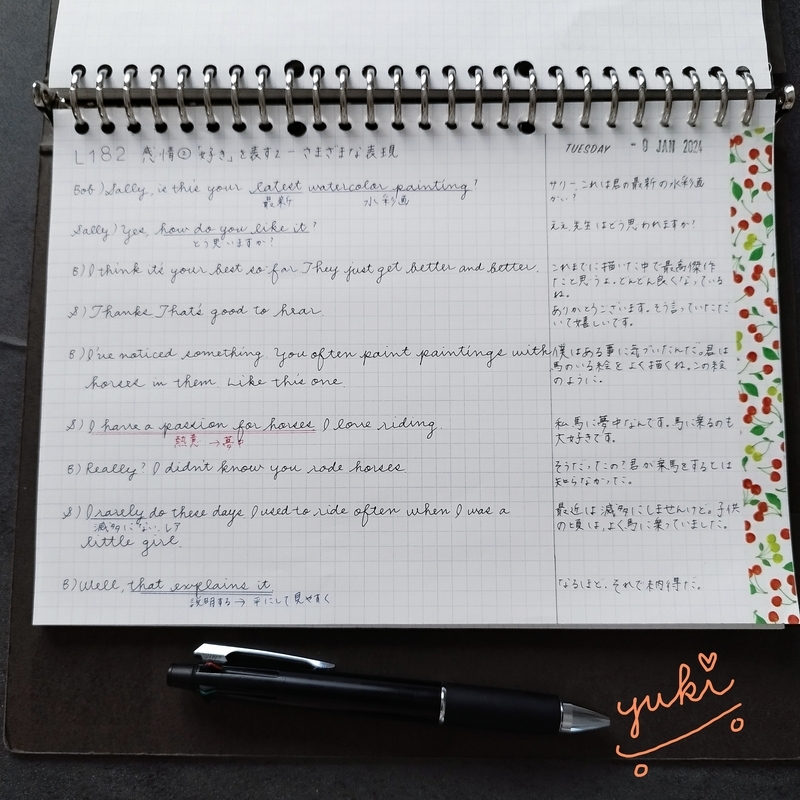 L182 感情② 「好き」を表す2 - さまざまな表現
TUESDAY - 9 JAN 2024
Bob) Sally, is this your latest watercolor painting?
最新 水彩画
サリー、これは君の最新の水彩画
かい?
Sally) Yes, how do you like it?
どう思いますか?
ええ、先生はどう思われますか?
B) I think it's your best so far They just get better and better.
これまでに描いた中で最高傑作
だと思うよ。どんどん良くなっている
ね。
S) Thanks That's good to hear.
ありがとうございます。そう言っていただ
いて嬉しいです。
B) I've noticed something. You often paint paintings with
horses in them Like this one
僕はある事に気づいたんだ。君は
馬のいる絵をよく描くね。この絵
のように。
S) I have a passion for horses I love riding.
熱意 → 夢中
私、馬に夢中なんです。馬に乗るのも
大好きです。
B) Really? I didn't know you rode horses
そうだったの?君が乗馬をするとは
知らなかった。
S) I rarely do these days I used to ride often when I was a
滅多にない、レア
little girl.
最近は滅多にしませんけど。子供
の頃は、よく馬に乗っていました。
B) Well, that explains it
説明する → 平にして見やすく
なるほど、それで納得だ。
yuki